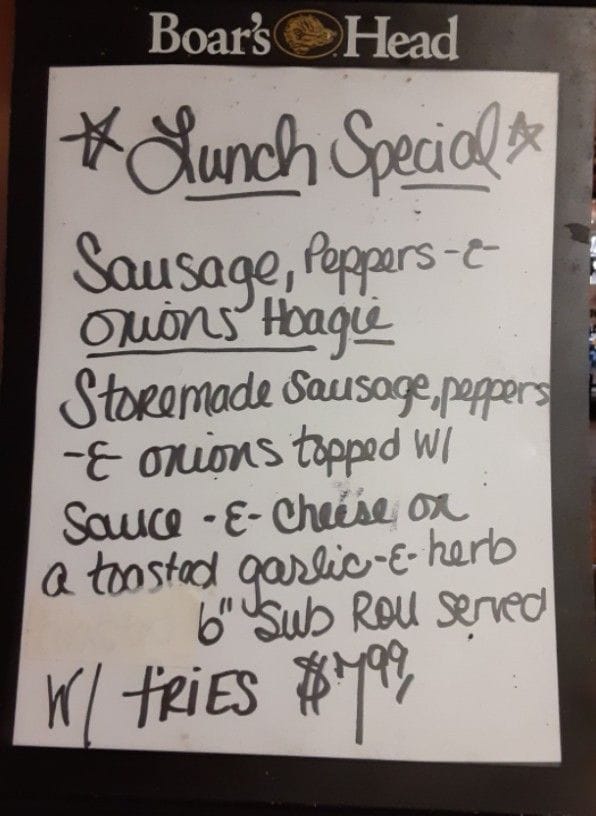 Boar's Head
☆ Lunch Special ☆
Sausage, Peppers -&-
onions Hoagie
Storemade Sausage, peppers
-&- onions topped W/
Sauce -&- Cheese on
a toasted garlic -&- herb
6" Sub Roll served
W/ FRIES $7.99